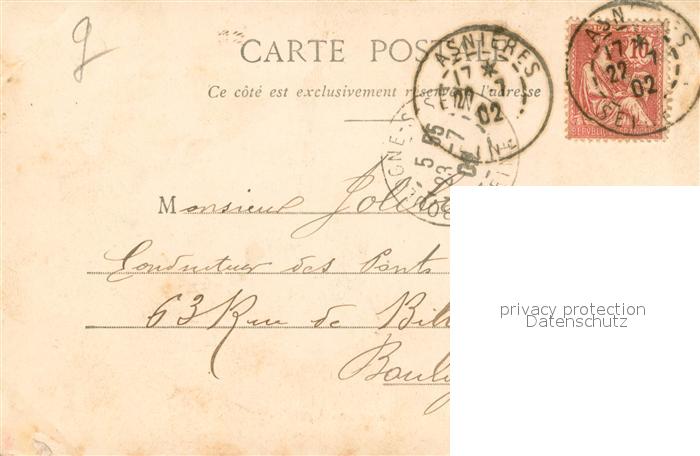 g
CARTE POSTALE
Ce côté est exclusivement réservé à l'adresse
ASNIÈRES
17 *
22 7
02
SEINE
ASNIÈRES
17 *
22 7
02
SEINE
10
REPUBLIQUE FRANÇAISE
5
23 7
02
Monsieur
Conducteur des Ponts
63 Rue de Bill
Boul
privacy protection
Datenschutz